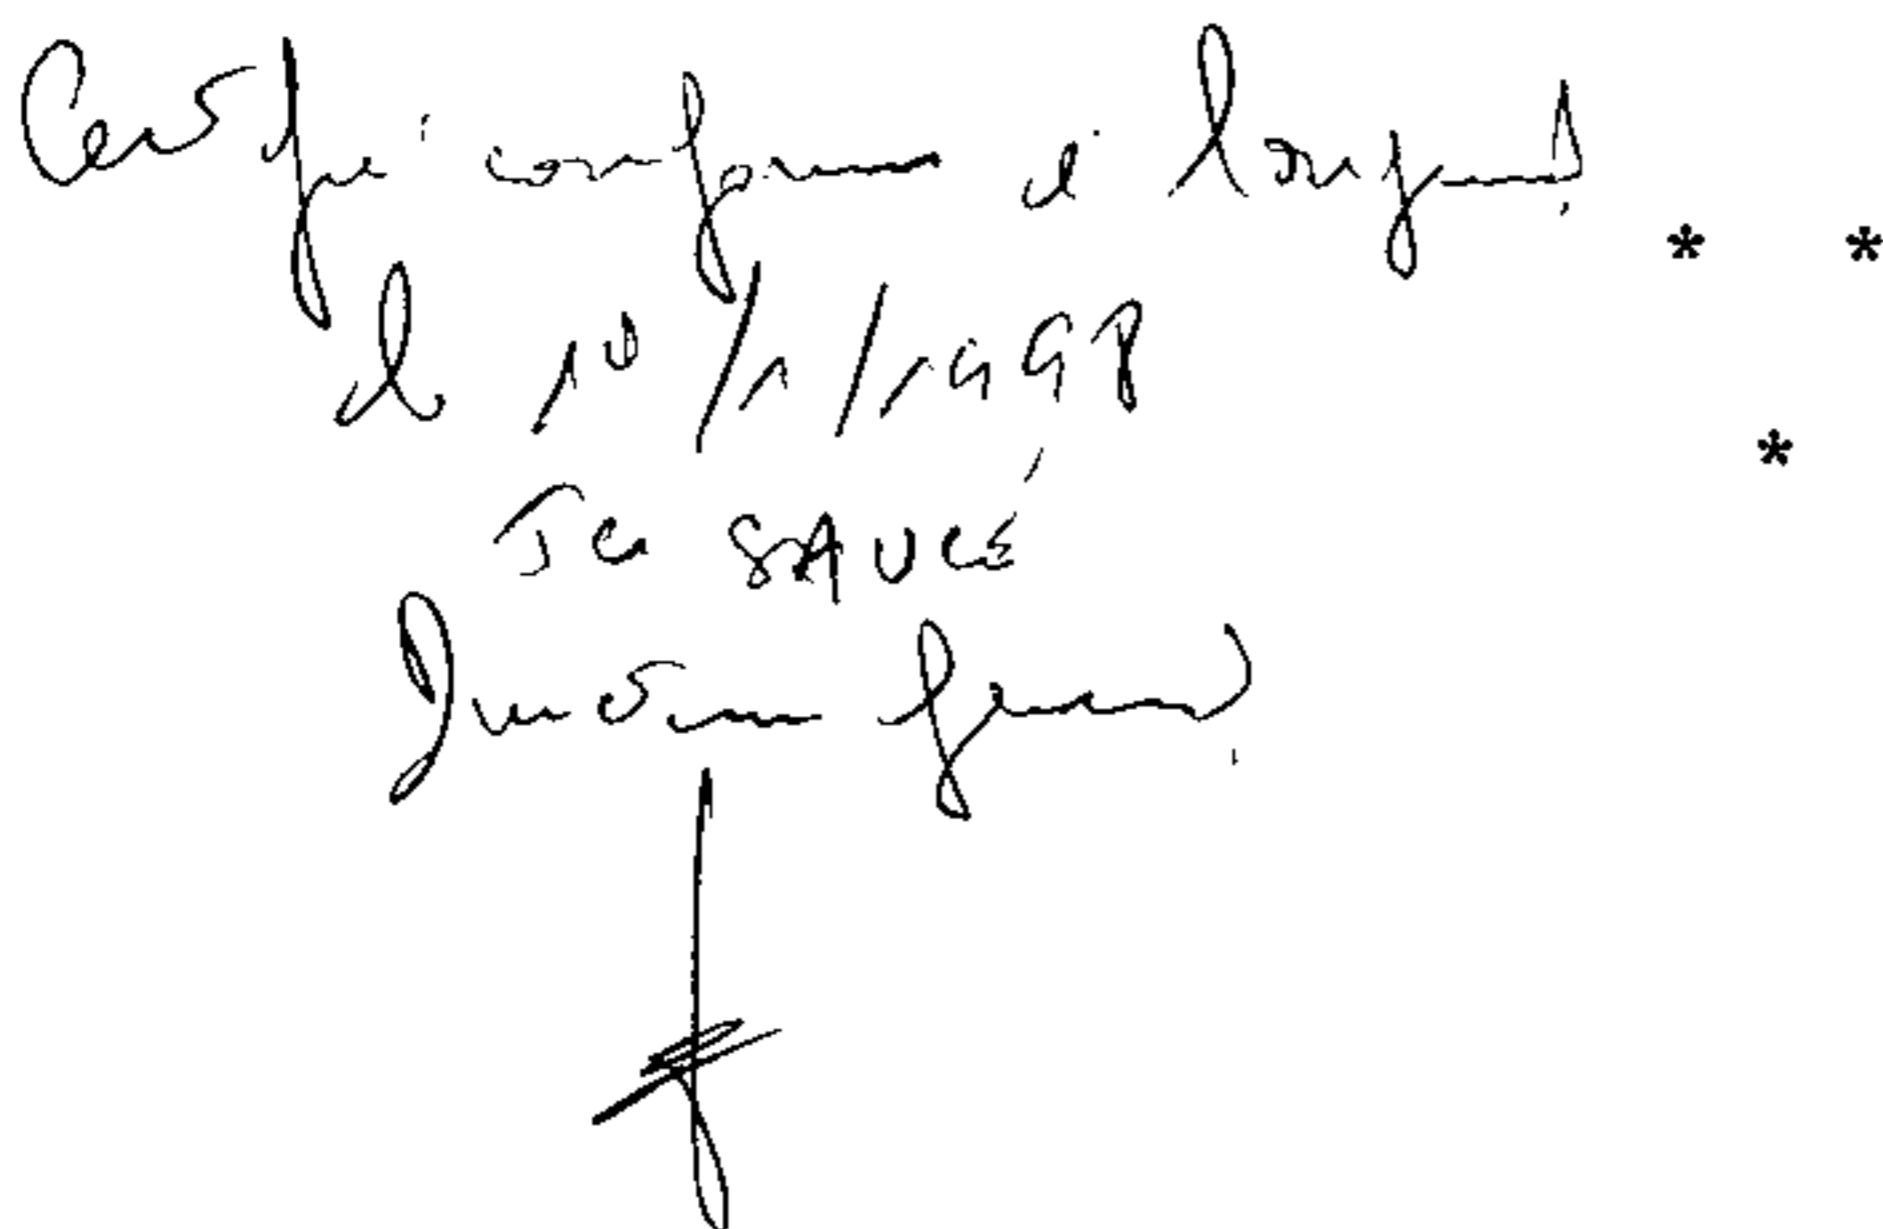 Certifié conforme à l'original * *
le 10/1/1998
*
JC SAUCÉ
Directeur Général